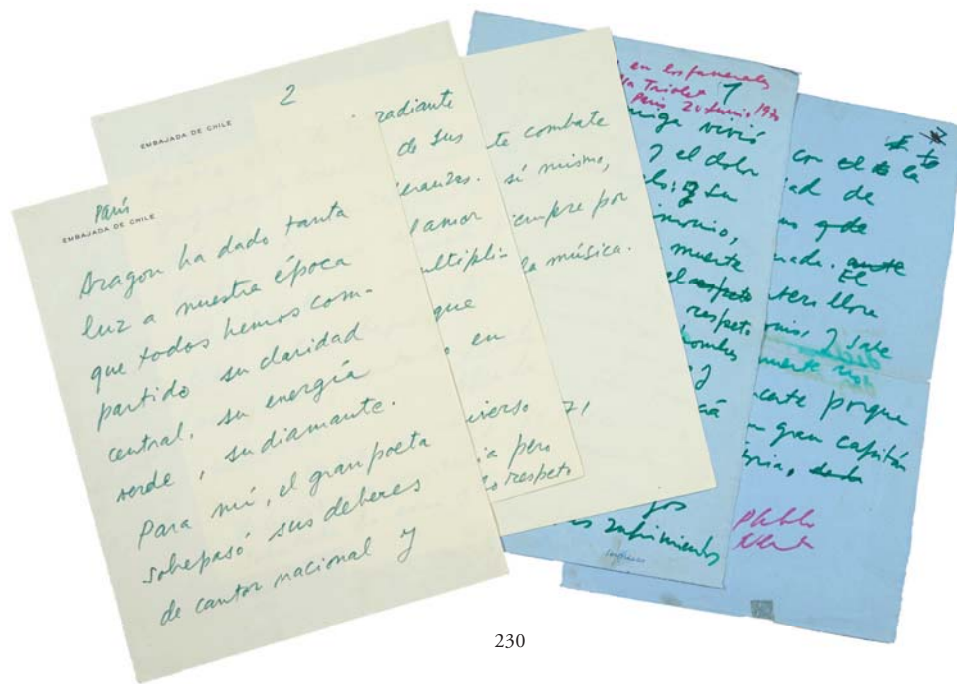 París
EMBAJADA DE CHILE
Aragon ha dado tanta
luz a nuestra época
que todos hemos com-
partido su claridad
central, su energía
verde, su diamante.
Para mí, el gran poeta
sobrepasó sus deberes
de cantor nacional y
2
EMBAJADA DE CHILE
radiante
de sus
eranzas.
amor
ultipli-
que
o en
iverso
ia pero
respeto
te combate
sí mismo,
iempre por
la música.
y,
en los funerales
la Triolet
París 20 Junio 1970
1
amiga vivió
y el dolor
y su
imonio,
muerte
el respeto
respeto
hombres
y
rá
gos
sufrimientos
con el la
ad de
no y de
nada. ante
El
teri llora
onio, y sabe
mente
porque
n gran capitán
oria,
Pablo
230